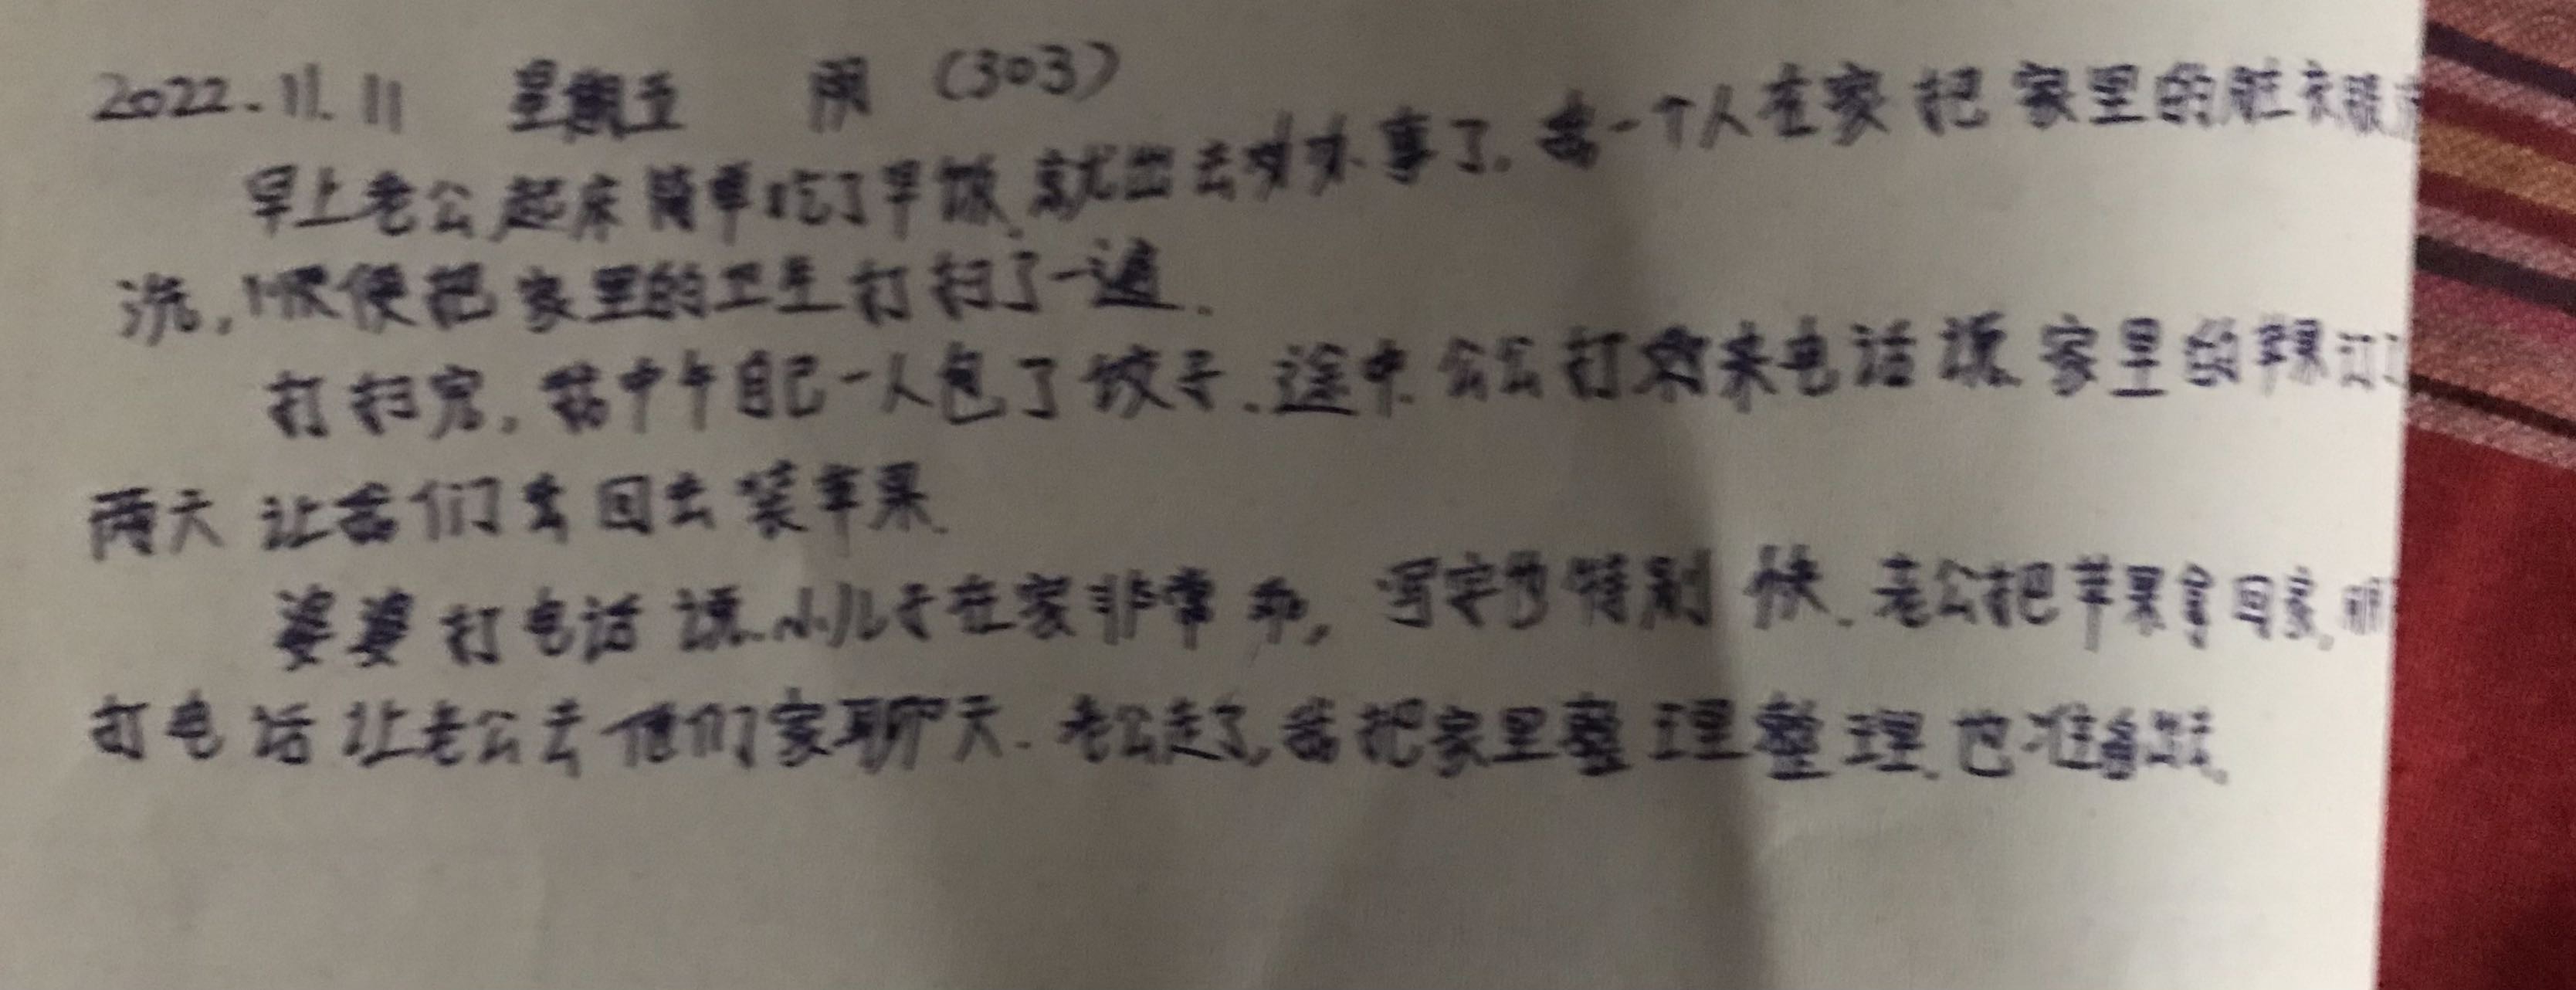 2022.11.11 星期五 阴 (303)
早上老公起床简单吃了早饭.就出去办事了.我一个人在家把家里的脏衣服
洗,顺便把家里的卫生打扫了一遍.
打扫完,我中午自己一人包了饺子.途中.公公打来电话说.家里的苹果
两天让我们去回去装苹果.
婆婆打电话说.小儿子在家非常乖,写字也特别快.老公把苹果拿回家.
打电话让老公去他们家聊天.老公走了.我把家里整理整理.也准备出去.